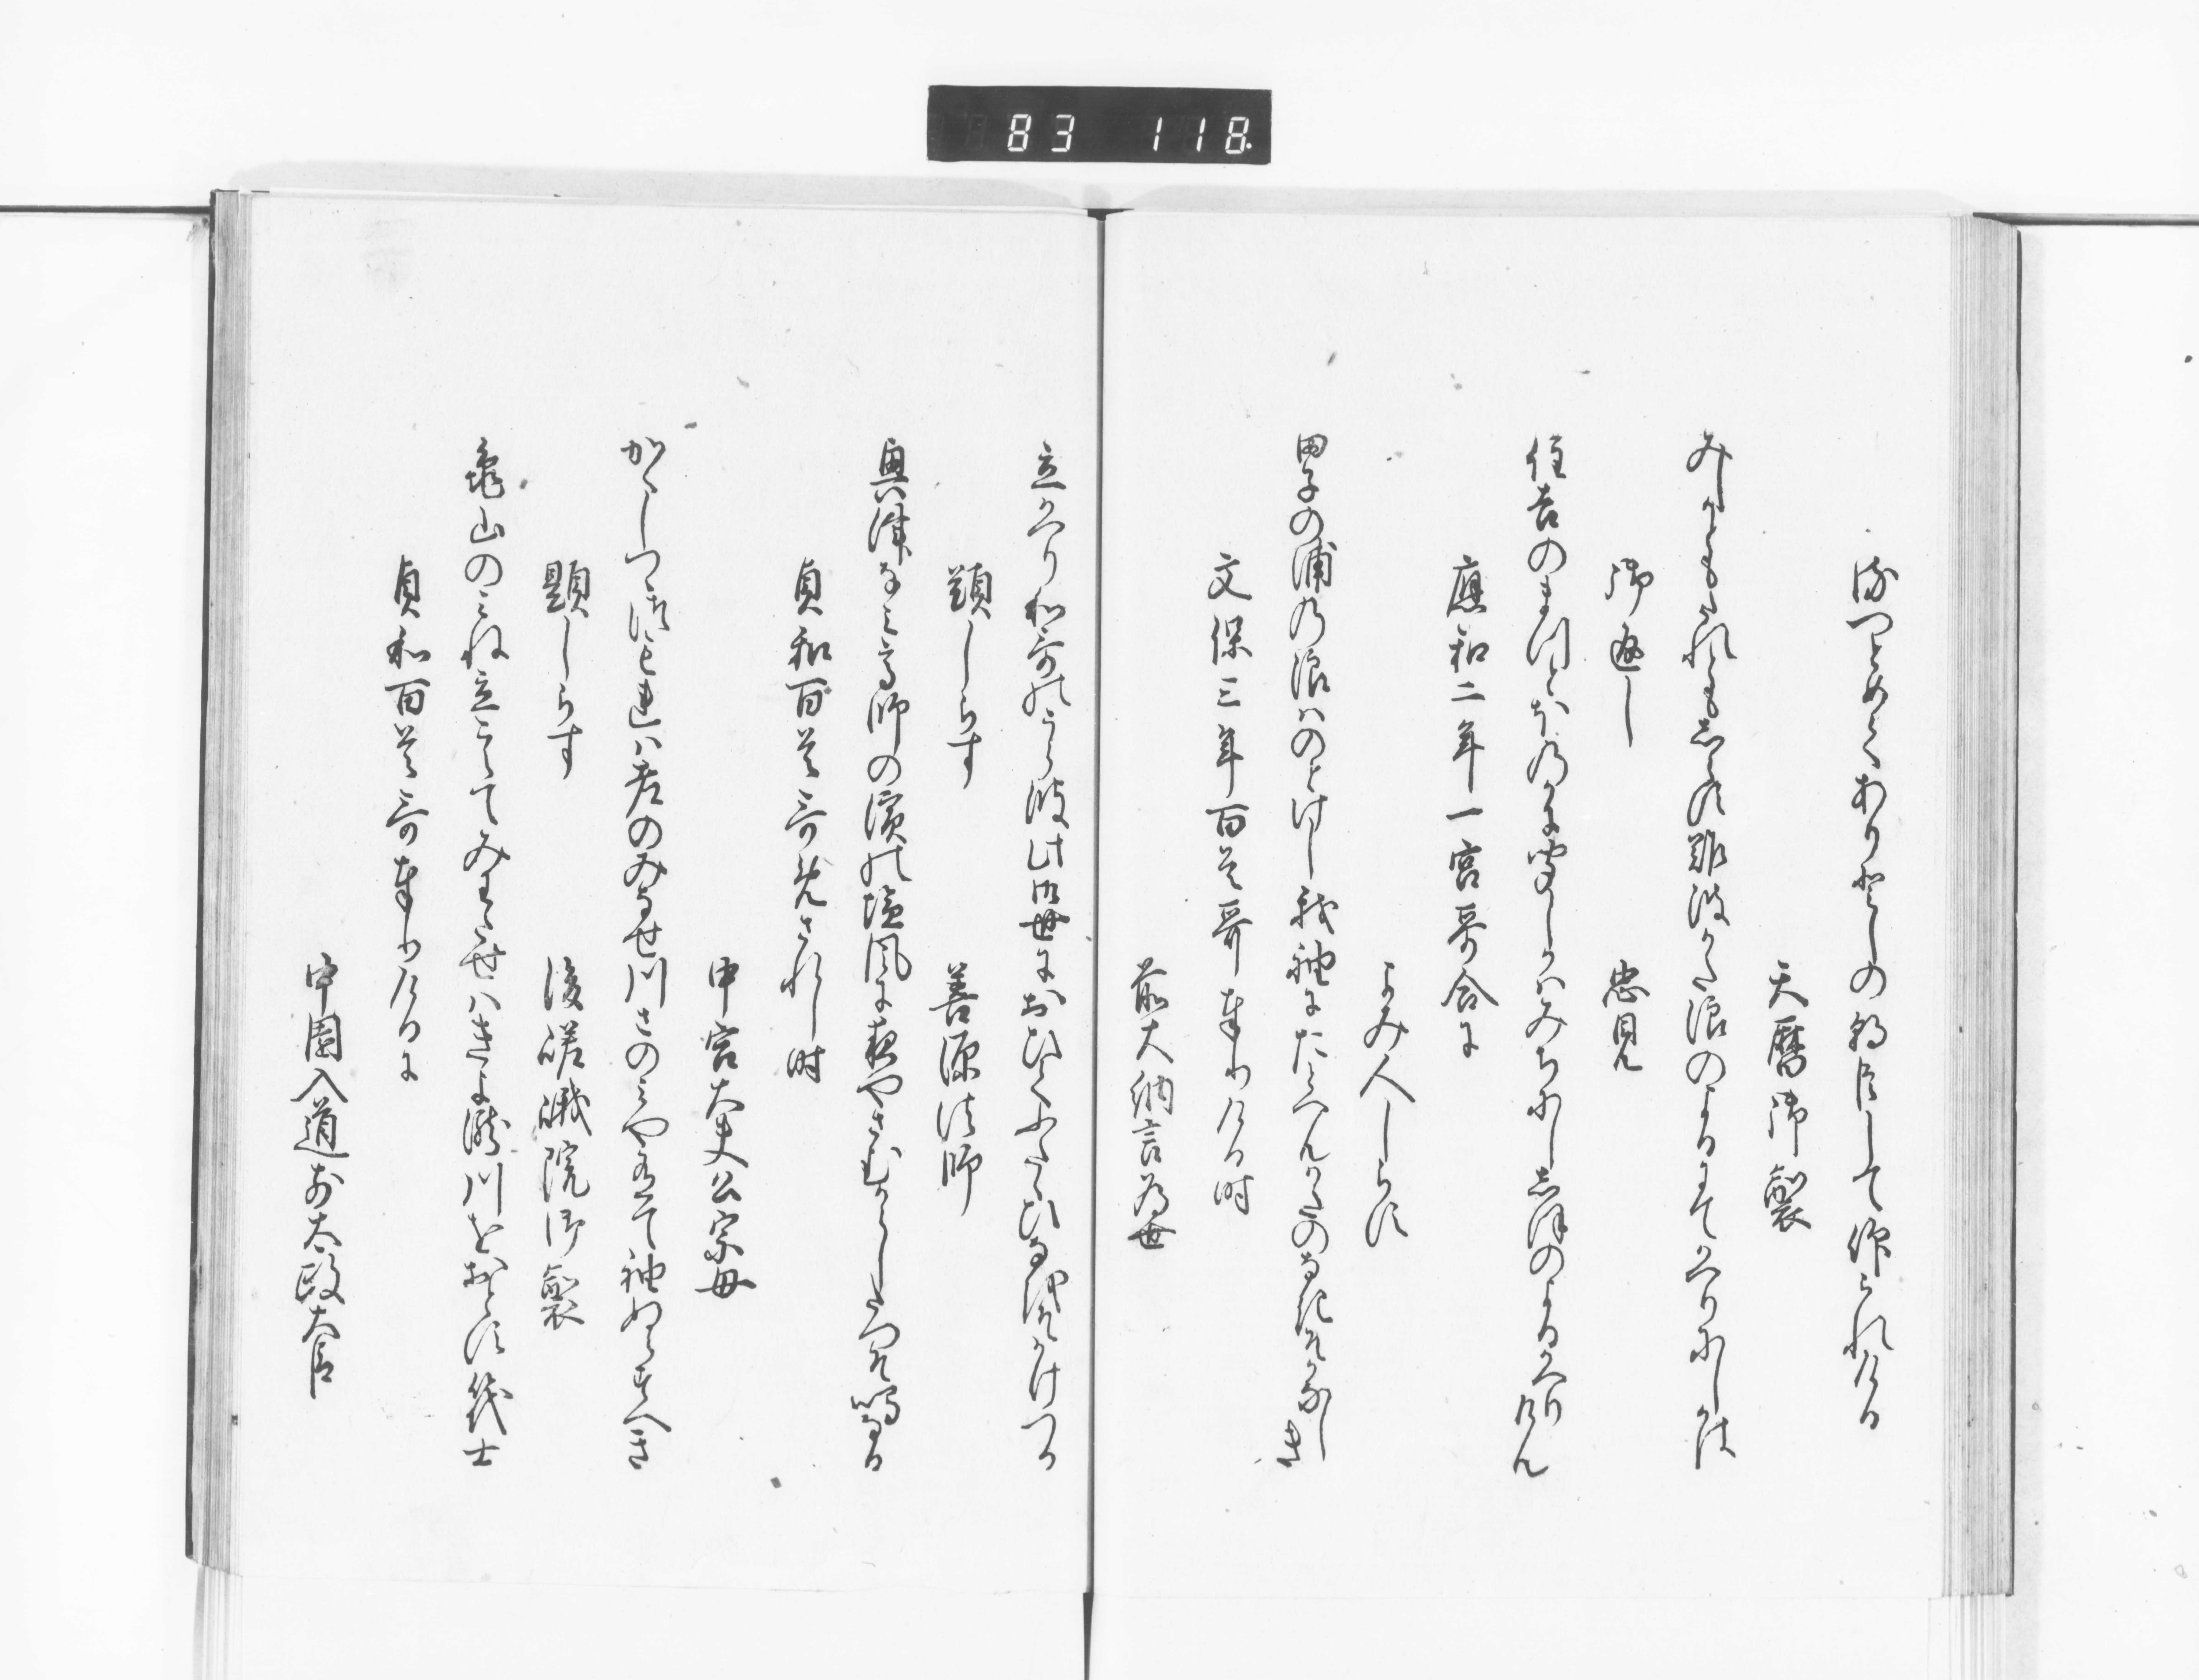 侍つとめてありとしの朝臣して仰られける
天暦御製
みしかともそれとも志らす難波かた浪のよるにてかへりにしかは
御返し
忠見
住吉のまつとほのかに聞しかはみちにし志ほのよるかへりけん
應和二年一宮哥合に
よみ人しらす
田子の浦の浪はのとけし我袖にたとへんかたのなきそかなしき
文保三年百首哥奉りける時
前大納言為世
立かへり和哥のうら波此御世におひてふたゝひ名をそかけつる
題しらす
善源法師
興津なみ高師の濱の塩風に夜やさむからしたつそ鳴なる
貞和百首哥めされし時
中宮大夫公宗母
かくしつゝ君のみなせ川さのみや袖ぬらすへき
題しらす
後嵯峨院御製
亀山のみね立こえてみわたせはきよ瀧川をおとす筏士
貞和百首哥奉りけるに
中園入道前太政大臣
83 118